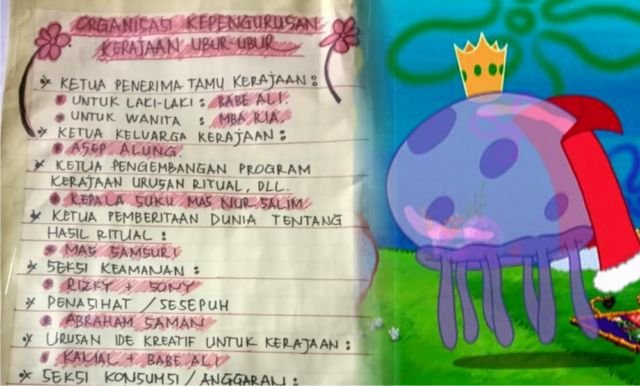 ORGANISASI KEPENGURUSAN
KERAJAAN UBUR-UBUR
* KETUA PENERIMA TAMU KERAJAAN :
* UNTUK LAKI-LAKI : BABE ALI.
* UNTUK WANITA : MBA RIA.
* KETUA KELUARGA KERAJAAN :
* ASEP ALUNG.
* KETUA PENGEMBANGAN PROGRAM
KERAJAAN URUSAN RITUAL, DLL.
* KEPALA SUKU MAS NUR SALIM
* KETUA PEMBERITAAN DUNIA TENTANG
HASIL RITUAL :
* MAS SAMSURI
* SEKSI KEAMANAN :
* RIZKY + SONY
* PENASIHAT / SESEPUH
* ABRAHAM SAMAN
* URUSAN IDE KREATIF UNTUK KERAJAAN :
* KAMAL + BABE ALI
* SEKSI KONSUMSI / ANGGARAN :